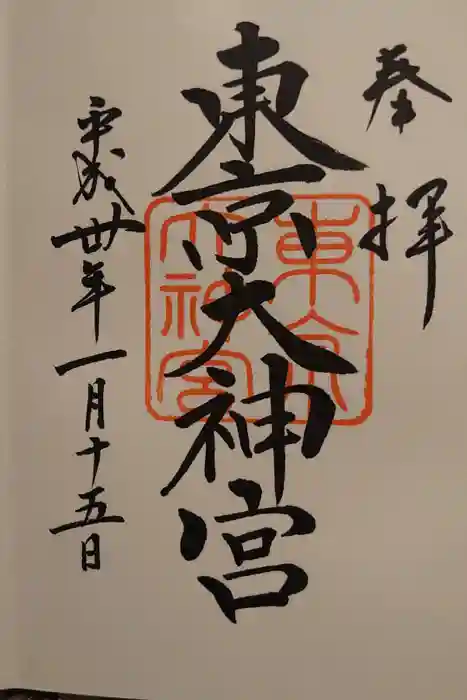 奉拝
東京大神宮
東京大神宮
平成卅年一月十五日